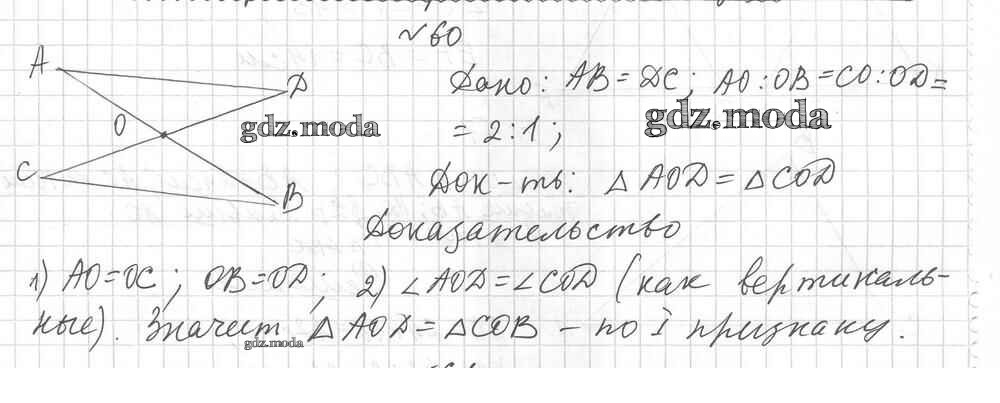 №60
A
D
O
C
B
Дано: AB = DC; AO:OB = CO:OD =
= 2:1;
Док-ть: △ AOD = △ COD
Доказательство
1) AO = OC; OB = OD; 2) ∠AOD = ∠COD (как вертикаль-
ные). Значит △ AOD = △ COB – по I признаку.
gdz.moda
gdz.moda
gdz.moda